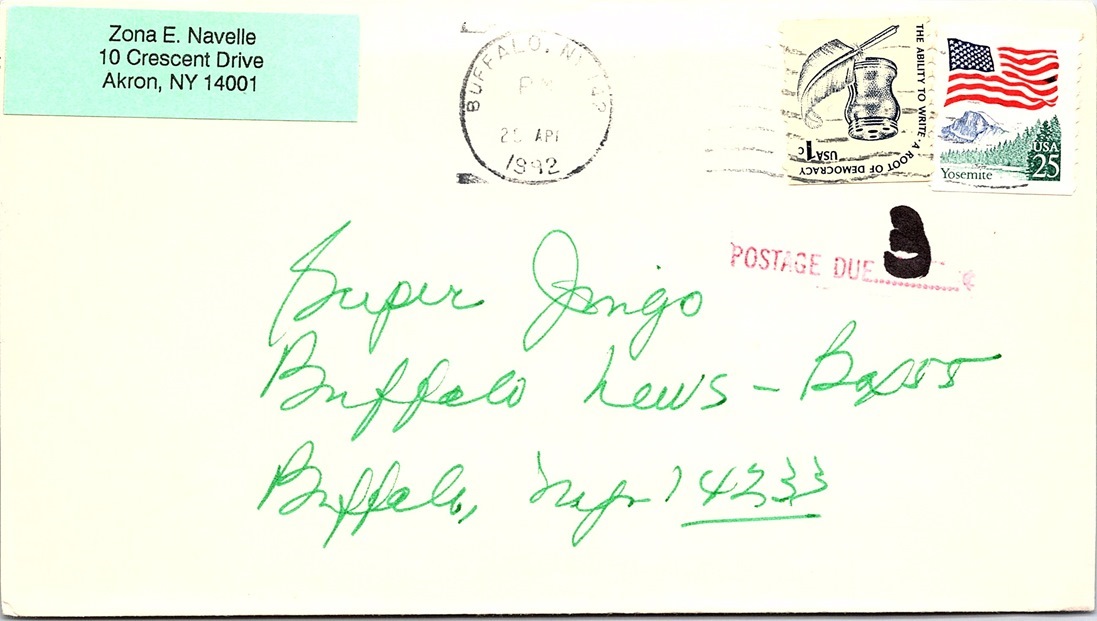 Zona E. Navelle
10 Crescent Drive
Akron, NY 14001
BUFFALO, NY 142
PM
APR
1992
THE ABILITY TO WRITE · A ROOT OF DEMOCRACY
USA 1c
USA
25
Yosemite
POSTAGE DUE 3 ¢
Super Jingo
Buffalo News - Box 55
Buffalo, N.Y. 14233